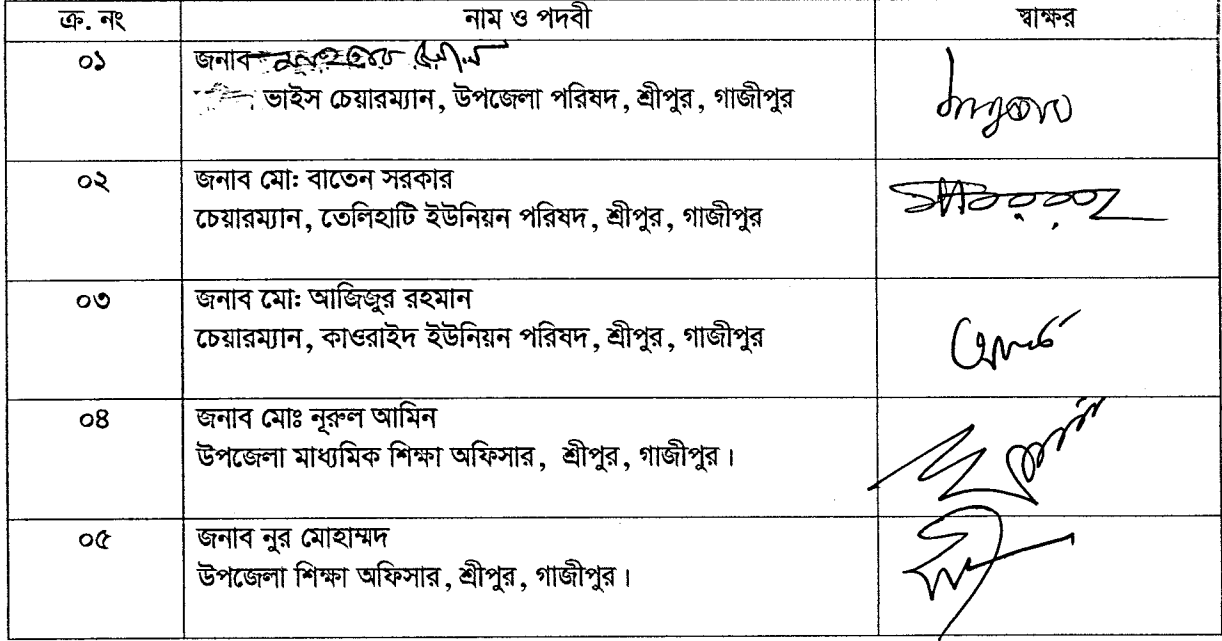 ক্র. নং নাম ও পদবী স্বাক্ষর
০১ জনাব
ভাইস চেয়ারম্যান, উপজেলা পরিষদ, শ্রীপুর, গাজীপুর
০২ জনাব মো: বাতেন সরকার
চেয়ারম্যান, তেলিহাটি ইউনিয়ন পরিষদ, শ্রীপুর, গাজীপুর
০৩ জনাব মো: আজিজুর রহমান
চেয়ারম্যান, কাওরাইদ ইউনিয়ন পরিষদ, শ্রীপুর, গাজীপুর
০৪ জনাব মোঃ নূরুল আমিন
উপজেলা মাধ্যমিক শিক্ষা অফিসার, শ্রীপুর, গাজীপুর।
০৫ জনাব নুর মোহাম্মদ
উপজেলা শিক্ষা অফিসার, শ্রীপুর, গাজীপুর।